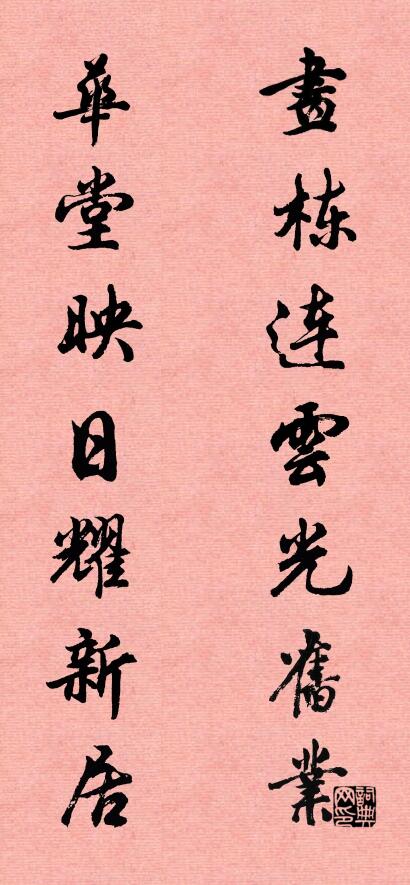 畫棟連雲光舊業
華堂映日耀新居
詞典网印